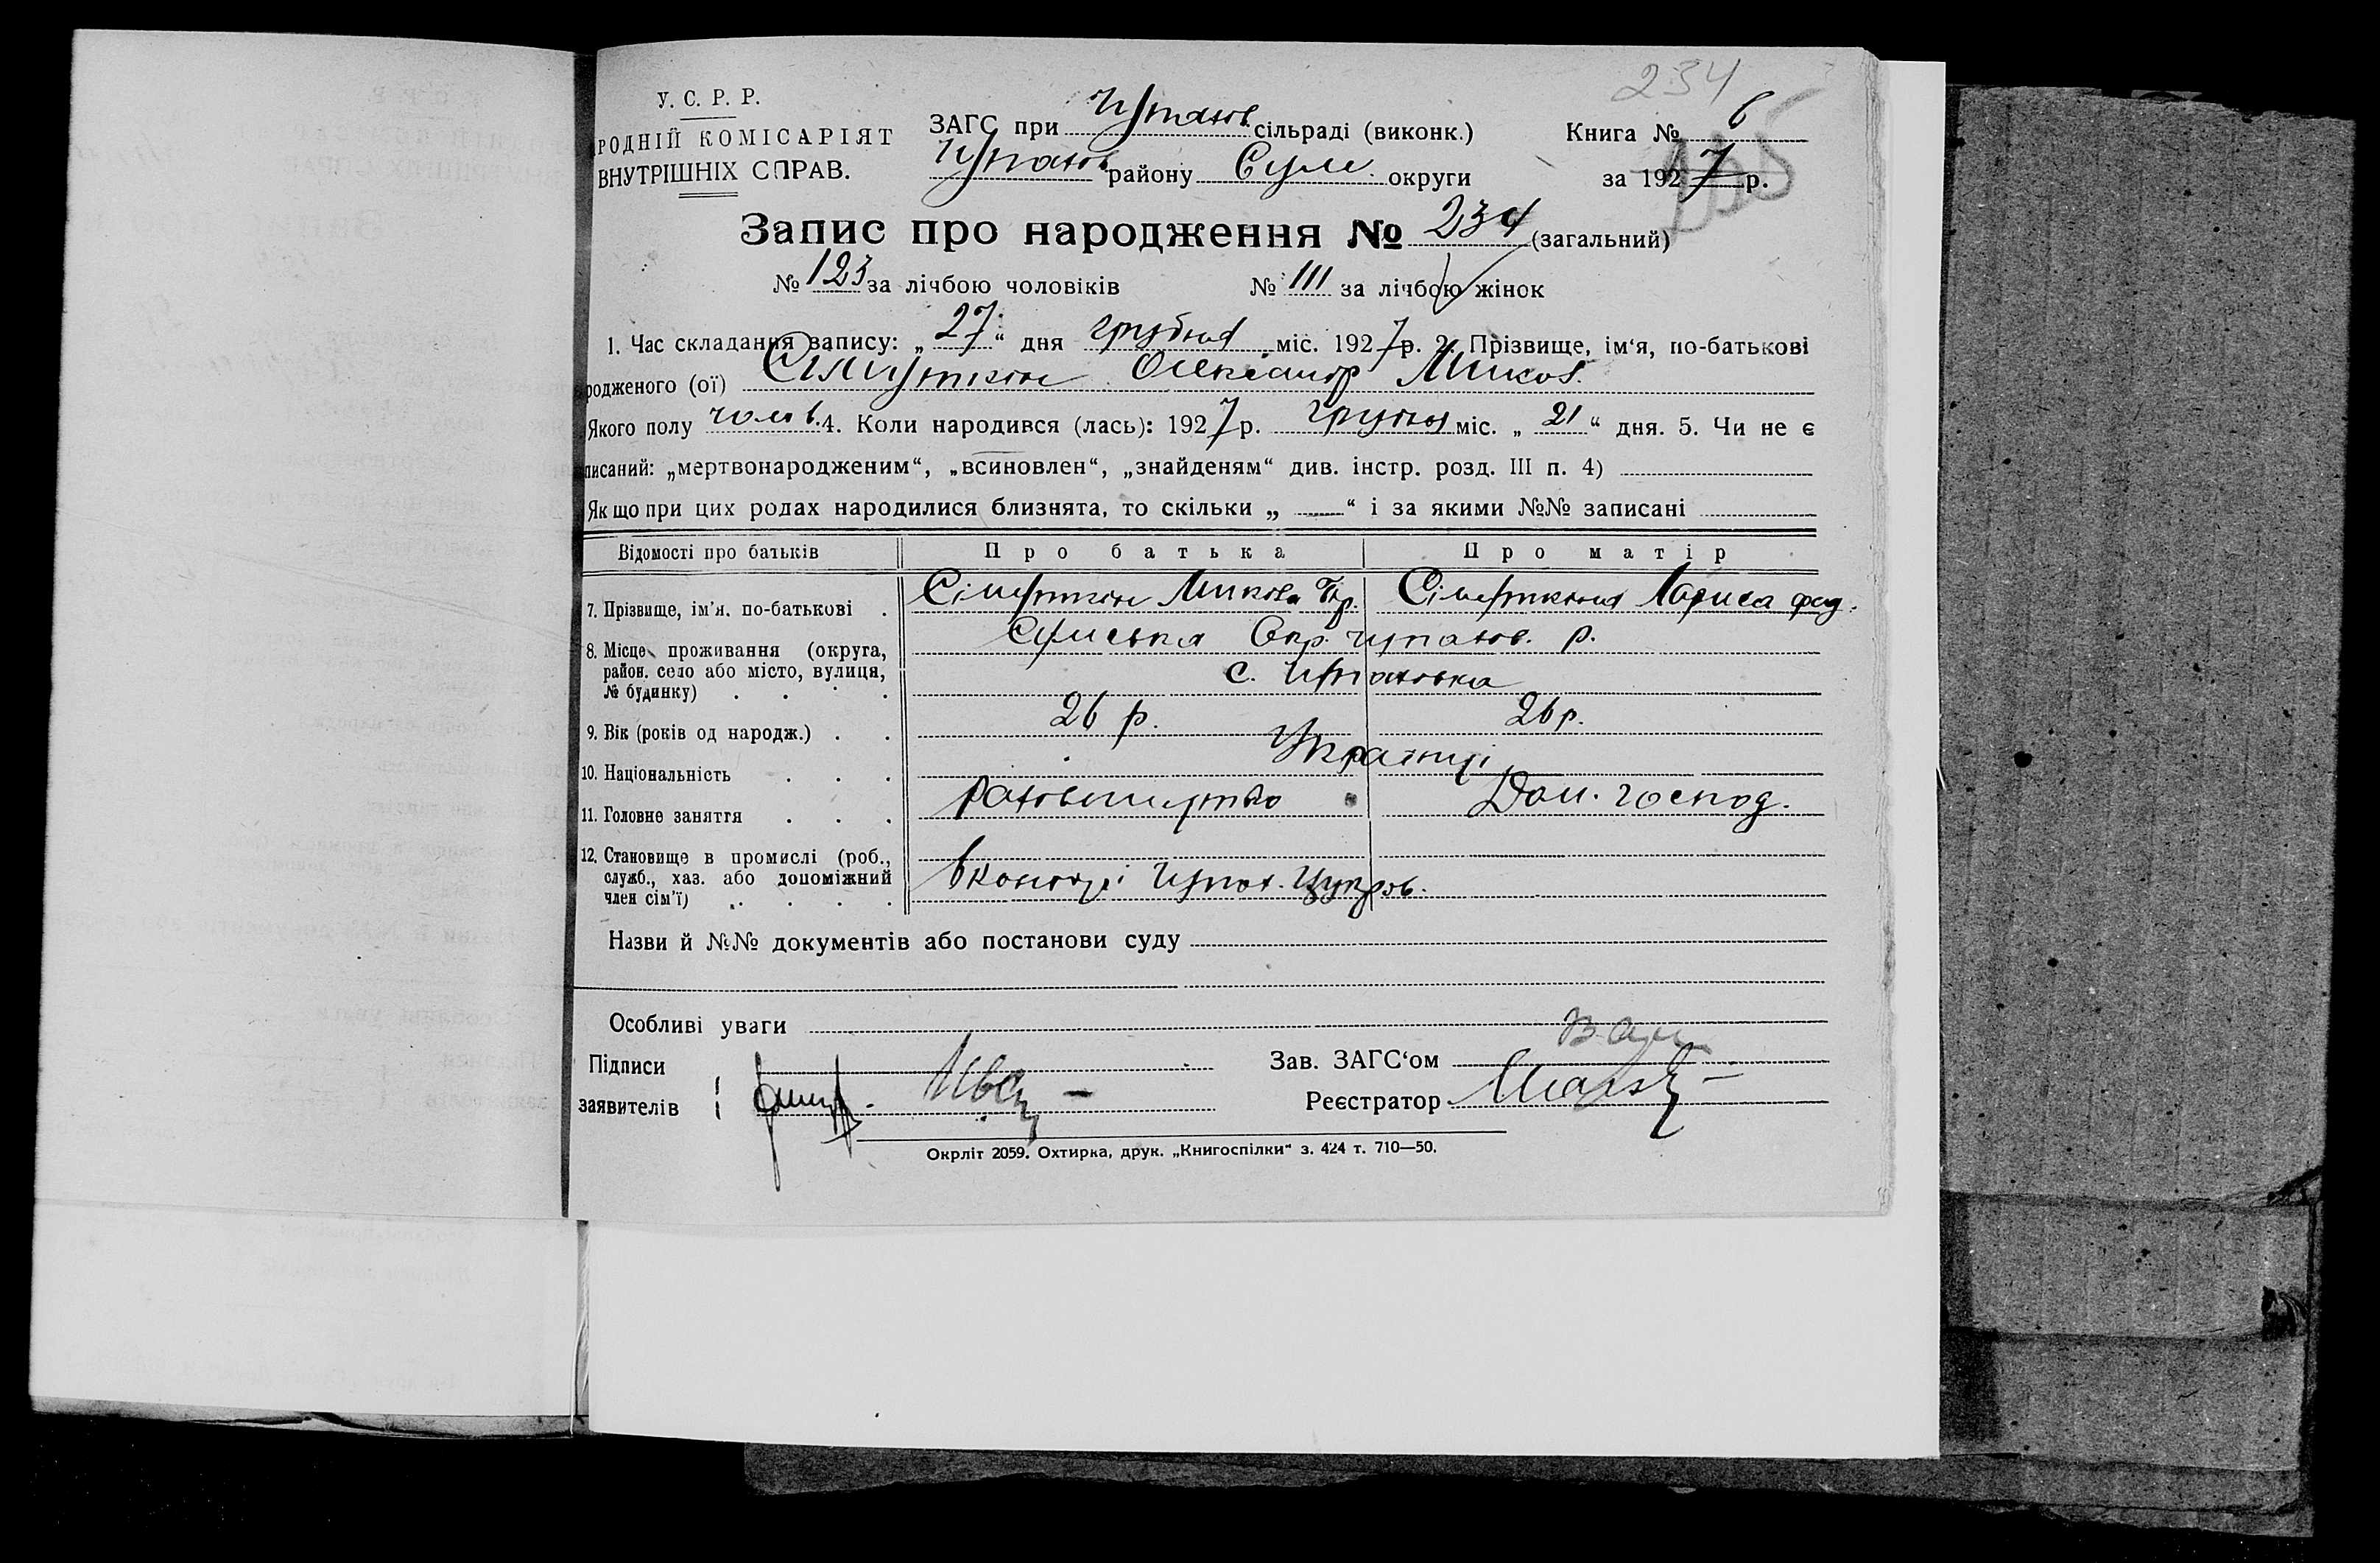 234
У. С. Р. Р.
РОДНІЙ КОМІСАРІЯТ
ВНУТРІШНІХ СПРАВ.
ЗАГС при сільраді (виконк.)
району Сум. округи
Книга № 6
за 1927 р.
Запис про народження № 234 (загальний)
№ 123 за лічбою чоловіків № 111 за лічбою жінок
1. Час складання запису: „27“ дня грудня міс. 1927 р. 2. Прізвище, ім‘я, по-батькові
родженого (ої) Олександр Миков.
Якого полу чолов. 4. Коли народився (лась): 1927 р. грудня міс. „21“ дня. 5. Чи не є
писаний: „мертвонародженим“, „всиновлен“, „знайденям“ див. інстр. розд. III п. 4)
Якщо при цих родах народилися близнята, то скільки „ “ і за якими №№ записані
Відомості про батьків Про батька Про матір
7. Прізвище, ім‘я, по-батькові . Микола Лариса Фед.
8. Місце проживання (округа, район, село або місто, вулиця, № будинку) . . . . Сумська Окр. р.
с.
9. Вік (років од народж.) . . 26 р. 26 р.
10. Національність . . . Українці
11. Головне заняття . . . Дом. господ.
12. Становище в промислі (роб., служб., хаз. або допоміжний член сім‘ї) . . . . Цукров.
Назви й №№ документів або постанови суду
Особливі уваги
Підписи
заявителів
Зав. ЗАГС‘ом
Реєстратор
Окрліт 2059. Охтирка, друк. „Книгоспілки“ з. 424 т. 710—50.